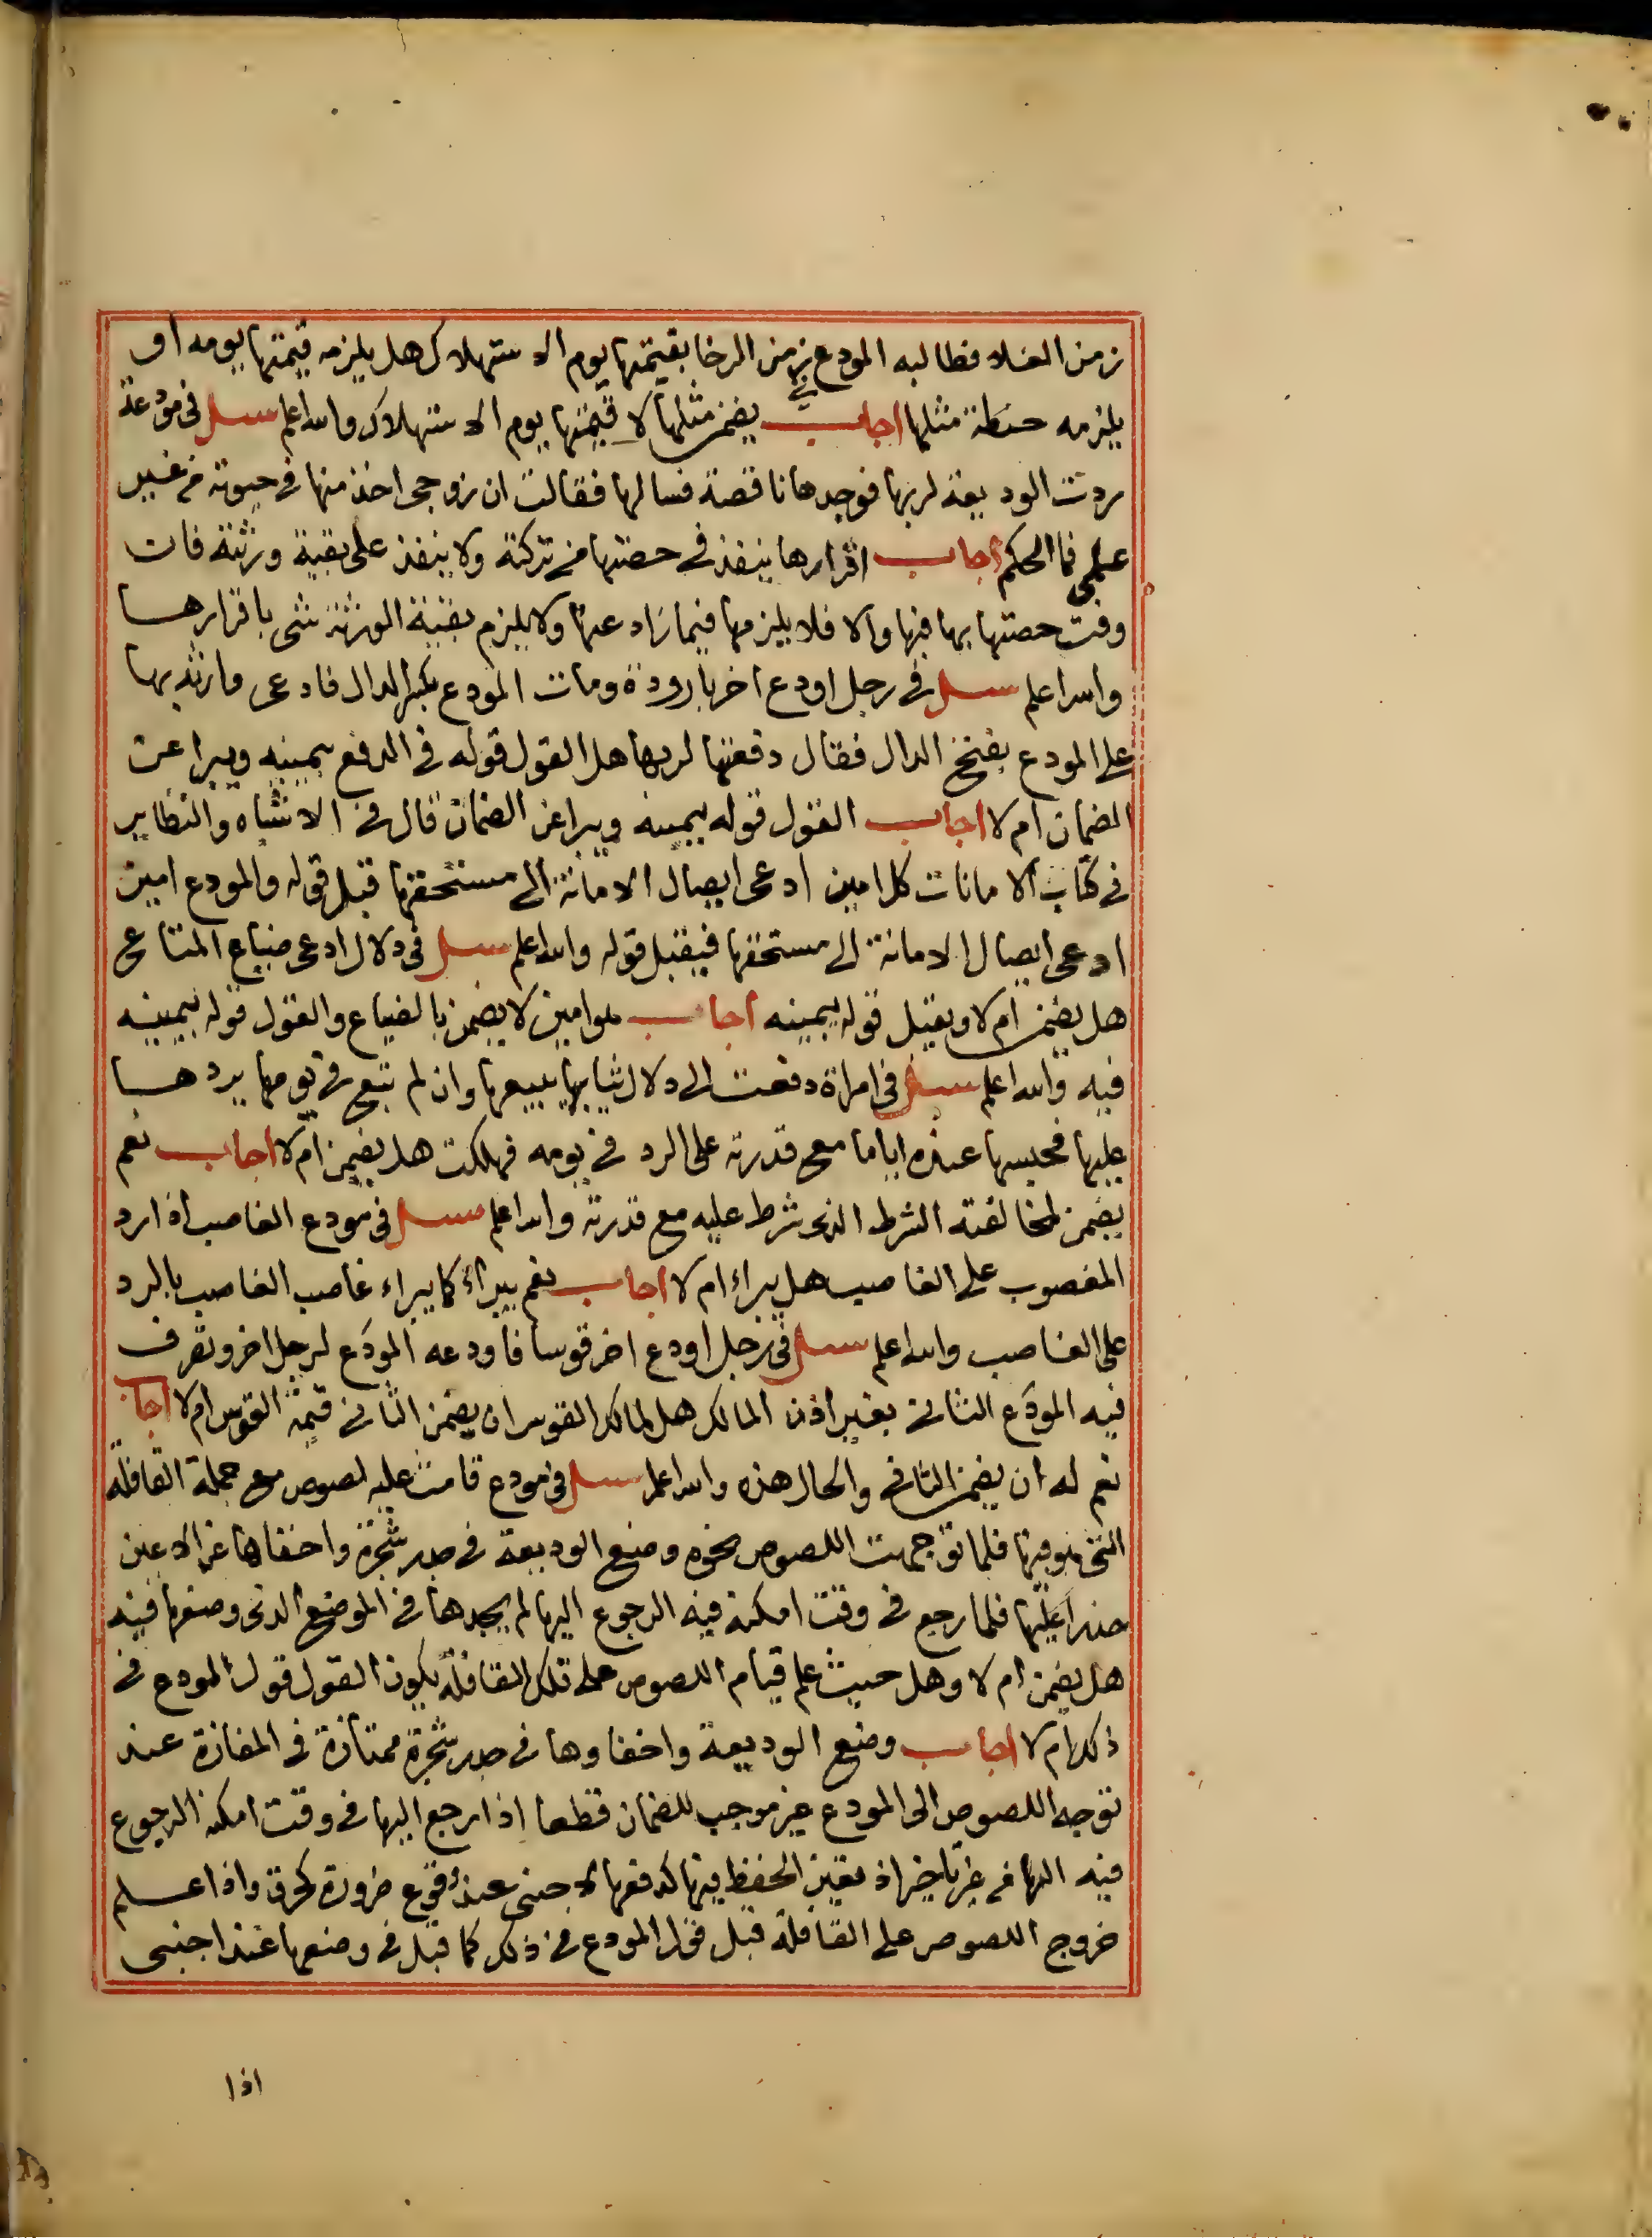 زمن الغلاء فطالبه المودع في زمن الرخا بقيمتها يوم الاستهلاك هل يلزمه قيمتها يومه او
يلزمه حنطة مثلها اجاب يضمن مثلها لا قيمتها يوم الاستهلاك والله اعلم سئل في مودعة
ردت الوديعة لربها فوجدها ناقصة فسالها فقالت ان زوجي اخذ منها في حيوته من غير
علمي فما الحكم اجاب اقرارها ينفذ في حصتها من تركته ولا ينفذ على بقية ورثته فان
وفت حصتها بها فبها والا فلا يلزمها فيما زاد عنها ولا يلزم بقية الورثة شي باقرارها
والله اعلم سئل في رجل اودع اخر بارودة ومات المودع بكسر الدال فادعى وارثه بها
على المودع بفتح الدال فقال دفعتها لربها هل القول قوله في الدفع بيمينه ويبرا عن
الضمان ام لا اجاب القول قوله بيمينه ويبرا عن الضمان قال في الاشباه والنظاير
في كتاب الامانات كل امين ادعى ايصال الامانة الى مستحقها قبل قوله والمودع امين
ادعى ايصال الامانة الى مستحقها فيقبل قوله والله اعلم سئل في دلال ادعى ضياع المتاع
هل يضمن ام لا ويقبل قوله بيمينه اجاب هو امين لا يضمن بالضياع والقول قوله بيمينه
فيه والله اعلم سئل في امراة دفعت الى دلال ثيابها يبيعها وان لم تبع في يومها يردها
عليها فحبسها عنده اياما مع قدرته على الرد في يومه فهلكت هل يضمن ام لا اجاب نعم
يضمن لمخالفته الشرط الذي شرط عليه مع قدرته والله اعلم سئل في مودع الغاصب اذا رد
المغصوب على الغاصب هل يبراء ام لا اجاب نعم يبراء كما يبراء غاصب الغاصب بالرد
على الغاصب والله اعلم سئل في رجل اودع اخر قوسا فاودعه المودع لرجل اخر وتصرف
فيه المودع الثاني بغير اذن المالك هل لمالك القوس ان يضمن الثاني قيمة القوس ام لا اجاب
نعم له ان يضمن الثاني والحال هذه والله اعلم سئل في مودع قامت عليه لصوص مع جملة القافلة
التي هو فيها فلما توجهت اللصوص نحوه وضع الوديعة في جدر شجرة واخفاها عن الاعين
حذرا عليها فلما رجع في وقت امكنه فيه الرجوع اليها لم يجدها في الموضع الذي وضعها فيه
هل يضمن ام لا وهل حيث علم قيام اللصوص على تلك القافلة يكون القول قول المودع في
ذلك ام لا اجاب وضع الوديعة واخفاوها في جدر شجرة ممتازة في المفازة عند
توجه اللصوص الى المودع غير موجب للضمان قطعا اذا رجع اليها في وقت امكنه الرجوع
فيه اليها من غير تاخير اذ تعين الحفظ فيها كدفعها لاجنبي عند وقوع ضرورة كحرق واذا علم
خروج اللصوص على القافلة قبل قول المودع في ذلك كما قبل في وضعها عند اجنبي
اذا